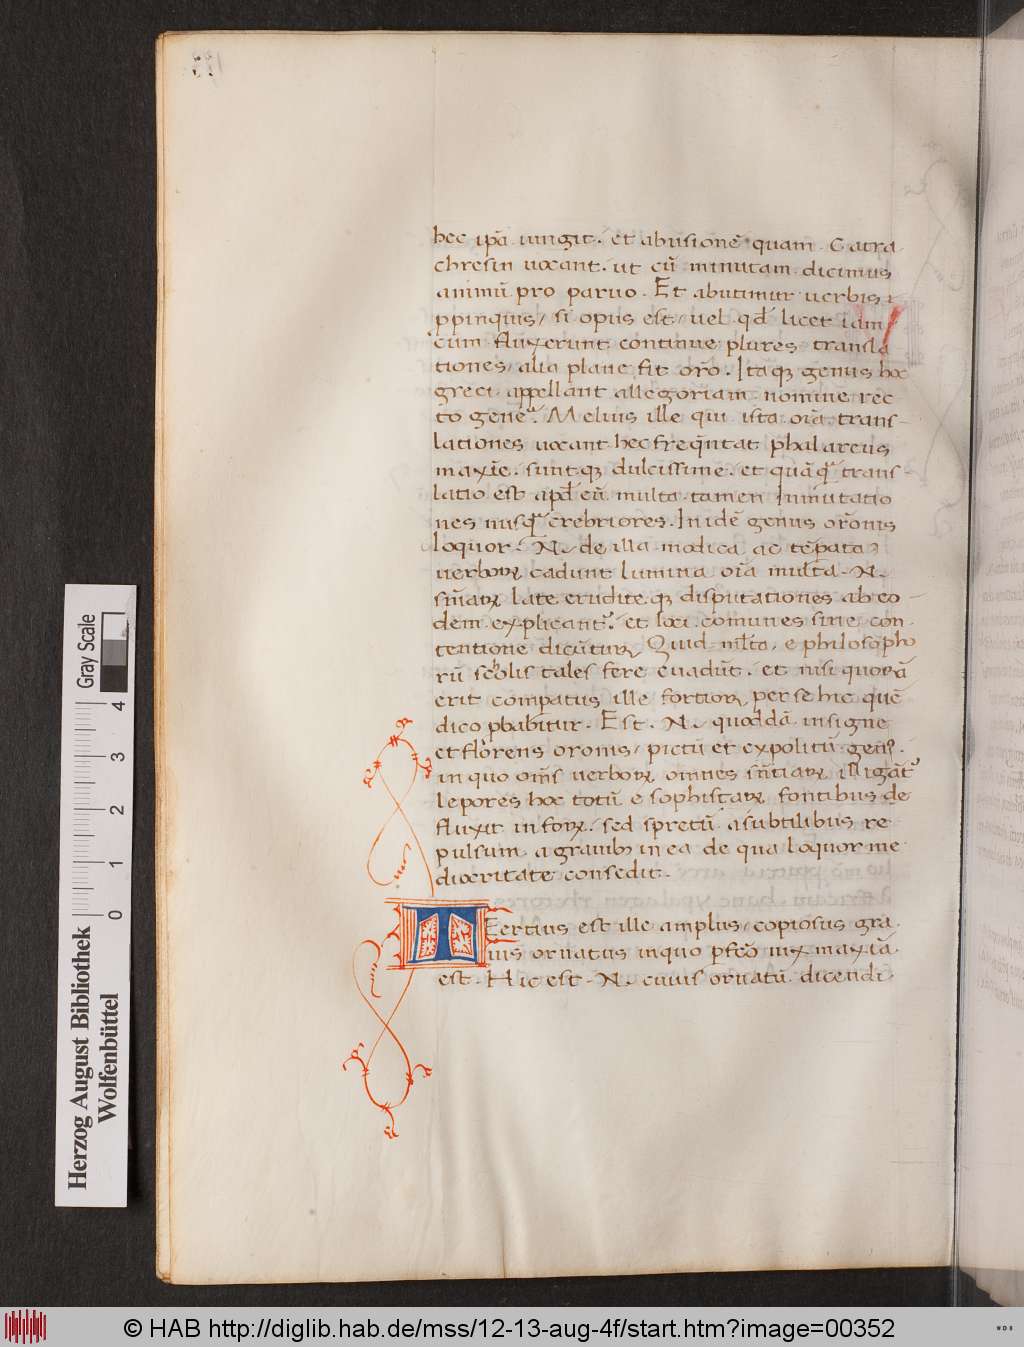 hec ip̄a iungit. et abusionē quam. Catra
chresin uocant. ut cū minutam dicimus
animū pro paruo. Et abutimur uerbis
ppinquis/ si opus est/ uel qd̄ licet iam
cum fluxerunt continue plures transla
tiones/ alia plane fit orō. Itaqꝫ genus hoc
greci appellant allegoriam nomine rec
to genere. Melius ille qui ista oīa trans-
lationes uocant hec freq̄ntat phalareus
maxīe. suntqꝫ dulcissime. et quāqꝫ trans-
latio est apd̄ eū multa tamen Inmutatio
nes nusq̄ crebriores. In idē genus orōnis
loquor. N. de illa modica ac tēpata
uerboꝝ cadunt lumina oīa multa. N.
sn̄iaꝝ late erudite qꝫ disputationes ab eo-
dem explicant. et loci comunes sine con-
tentione dicūtur. Quid mlta. e philosopho
rū scolis tales fere euadūt. et nisi quorā
erit compatus ille fortior per se hic quē
dico pbabitur. Est. N. quoddā insigne
et florens oronis/ pictū et expolitū gen̄s.
in quo om̄s uerboꝝ omnes sn̄tiaꝝ illigāt
lepores hoc totū e sophistaꝝ fontibus de
fluxit in foꝝ. sed spretū a subtilibus re
pulsum a grauibꝫ in ea de qua loquor me
diocritate consedit.
Tertius est ille amplus/ copiosus gra
uis ornatus in quo pfecō uix maxiā
est. Hic est. N. cuius ornatū dicendi
Herzog August Bibliothek
Wolfenbüttel
Gray Scale
0 1 2 3 4
© HAB http://diglib.hab.de/mss/12-13-aug-4f/start.htm?image=00352